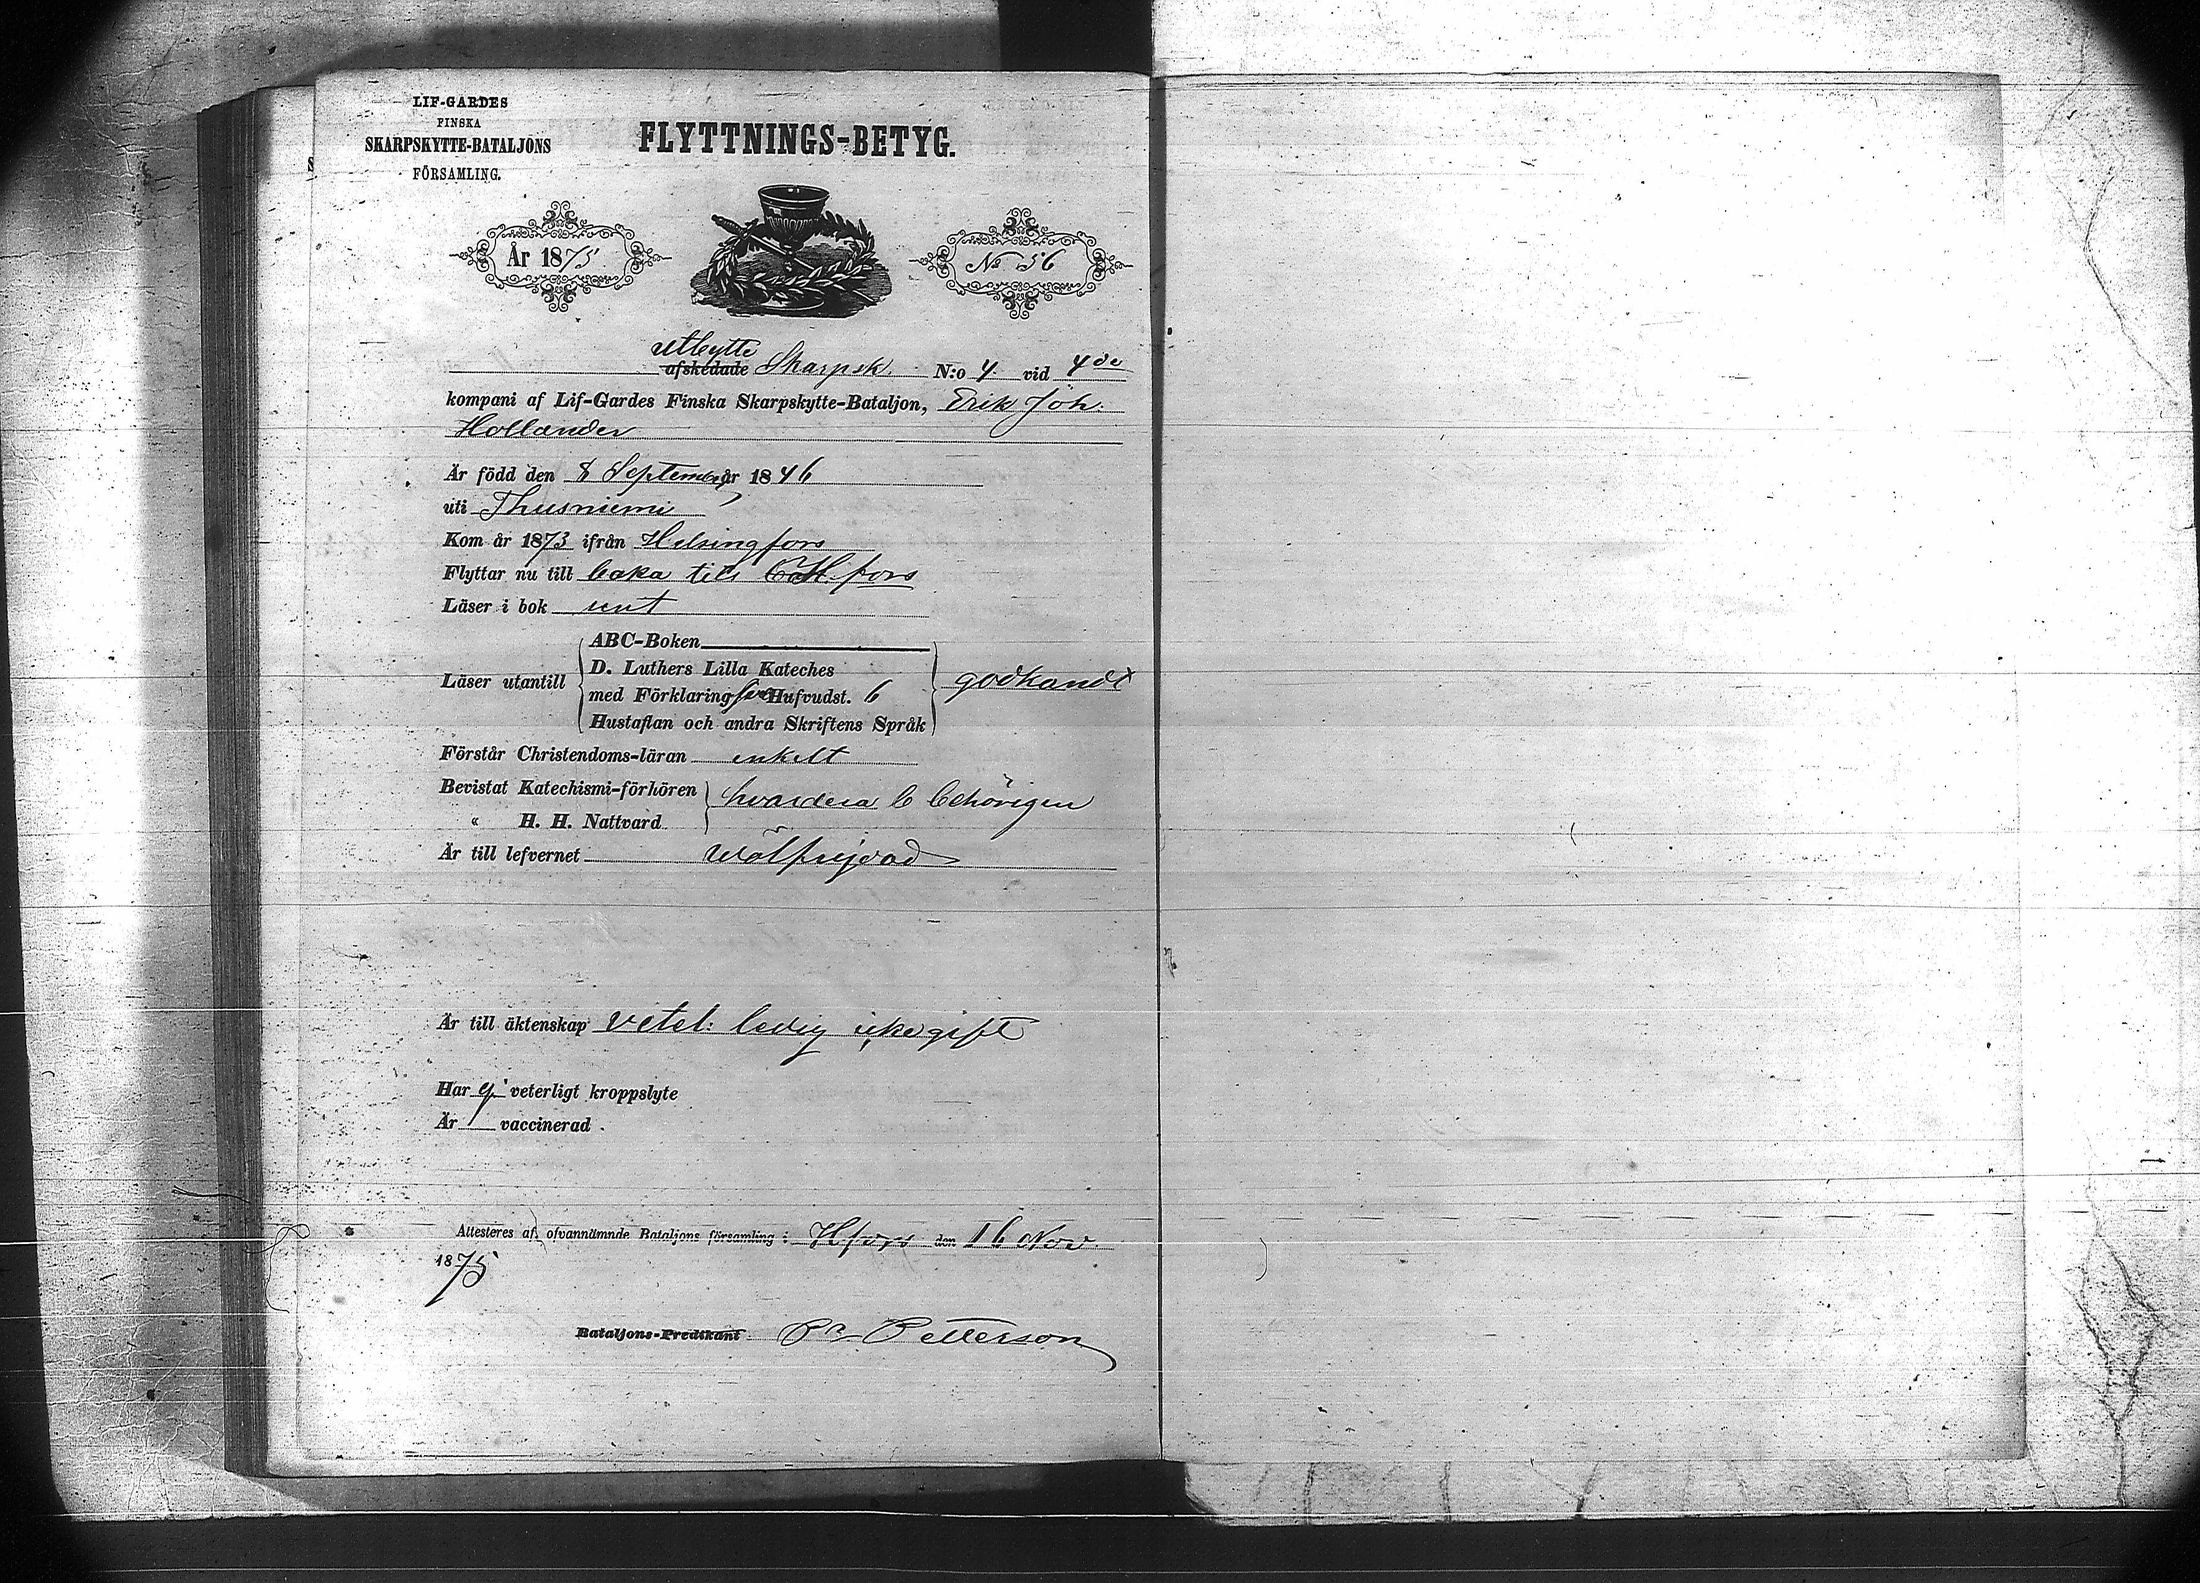 LIF-GARDES
FINSKA
SKARPSKYTTE-BATALJONS
FÖRSAMLING.
FLYTTNINGS-BETYG.
År 1875
No 56
utbytte
afskedade Skarpsk N:o 4. vid 4de
kompani af Lif-Gardes Finska Skarpskytte-Bataljon, Erik Joh.
Hollander
Är född den 8 September år 1846
uti Thusniemi
Kom år 1873 ifrån Helsingfors
Flyttar nu till baka till H.fors
Läser i bok rent
ABC-Boken
D. Luthers Lilla Kateches
Läser utantill med Förklaring Hufvudst. 6 godkandt
Hustaflan och andra Skriftens Språk
Förstår Christendoms-läran enkelt
Bevistat Katechismi-förhören hvardera behörigen
« H. H. Nattvard
Är till lefvernet wälfrejdad
Är till äktenskap vetel: ledig icke gift
Har ej veterligt kroppslyte
Är vaccinerad.
Attesteres af ofvannämnde Bataljons församling i Hfors den 16 Nov.
1875
Bataljons-Predikant Petterson